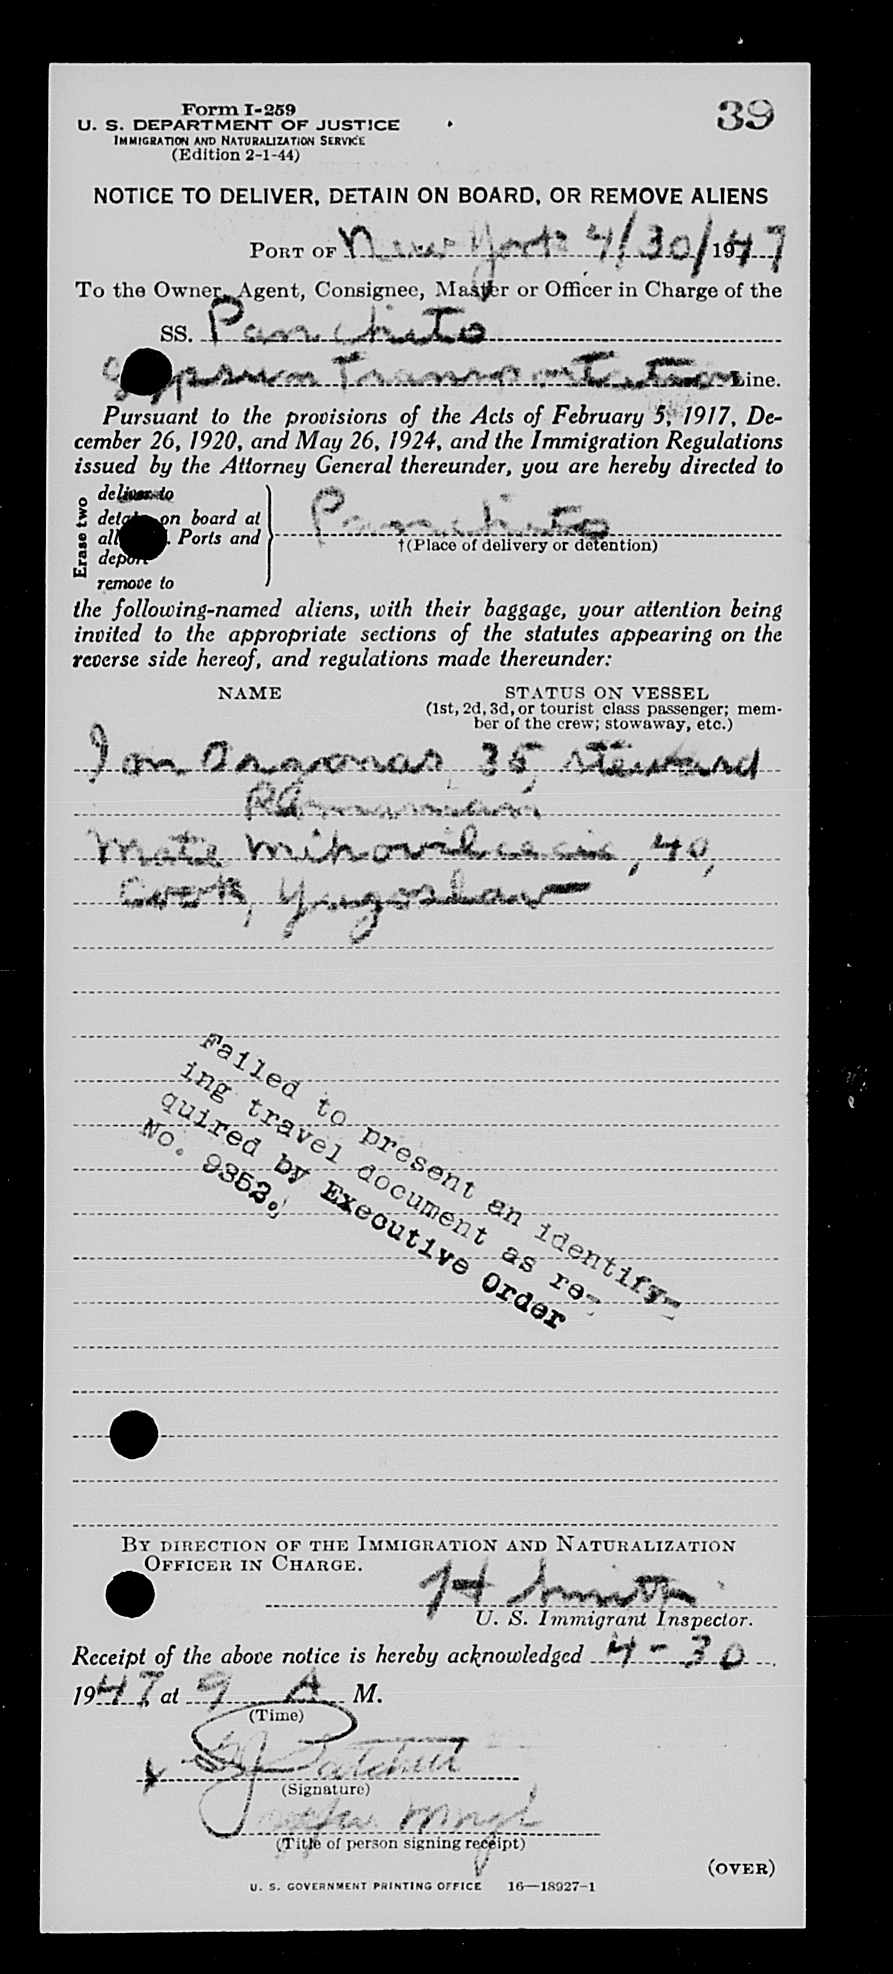 Form I-259
39
U. S. DEPARTMENT OF JUSTICE
IMMIGRATION AND NATURALIZATION SERVICE
(Edition 2-1-44)
NOTICE TO DELIVER, DETAIN ON BOARD, OR REMOVE ALIENS
PORT OF New York 4/30/1947
To the Owner, Agent, Consignee, Master or Officer in Charge of the
SS. Panchito
Gypsum Transportation Line.
Pursuant to the provisions of the Acts of February 5, 1917, De-
cember 26, 1920, and May 26, 1924, and the Immigration Regulations
issued by the Attorney General thereunder, you are hereby directed to
Erase two
deliver to
detain on board at
all Ports and
deport
remove to
Panchito
†(Place of delivery or detention)
the following-named aliens, with their baggage, your attention being
invited to the appropriate sections of the statutes appearing on the
reverse side hereof, and regulations made thereunder:
NAME STATUS ON VESSEL
(1st, 2d, 3d, or tourist class passenger; mem-
ber of the crew; stowaway, etc.)
Ion 35, steward
Mate 40,
Cook, Yugoslav
Failed to present an identify-
ing travel document as re-
quired by Executive Order
No. 9352.
BY DIRECTION OF THE IMMIGRATION AND NATURALIZATION
OFFICER IN CHARGE.
H Smith
U. S. Immigrant Inspector.
Receipt of the above notice is hereby acknowledged 4-30
1947 at 9 A M.
(Time)
(Signature)
(Title of person signing receipt)
(OVER)
U. S. GOVERNMENT PRINTING OFFICE 16—18927-1